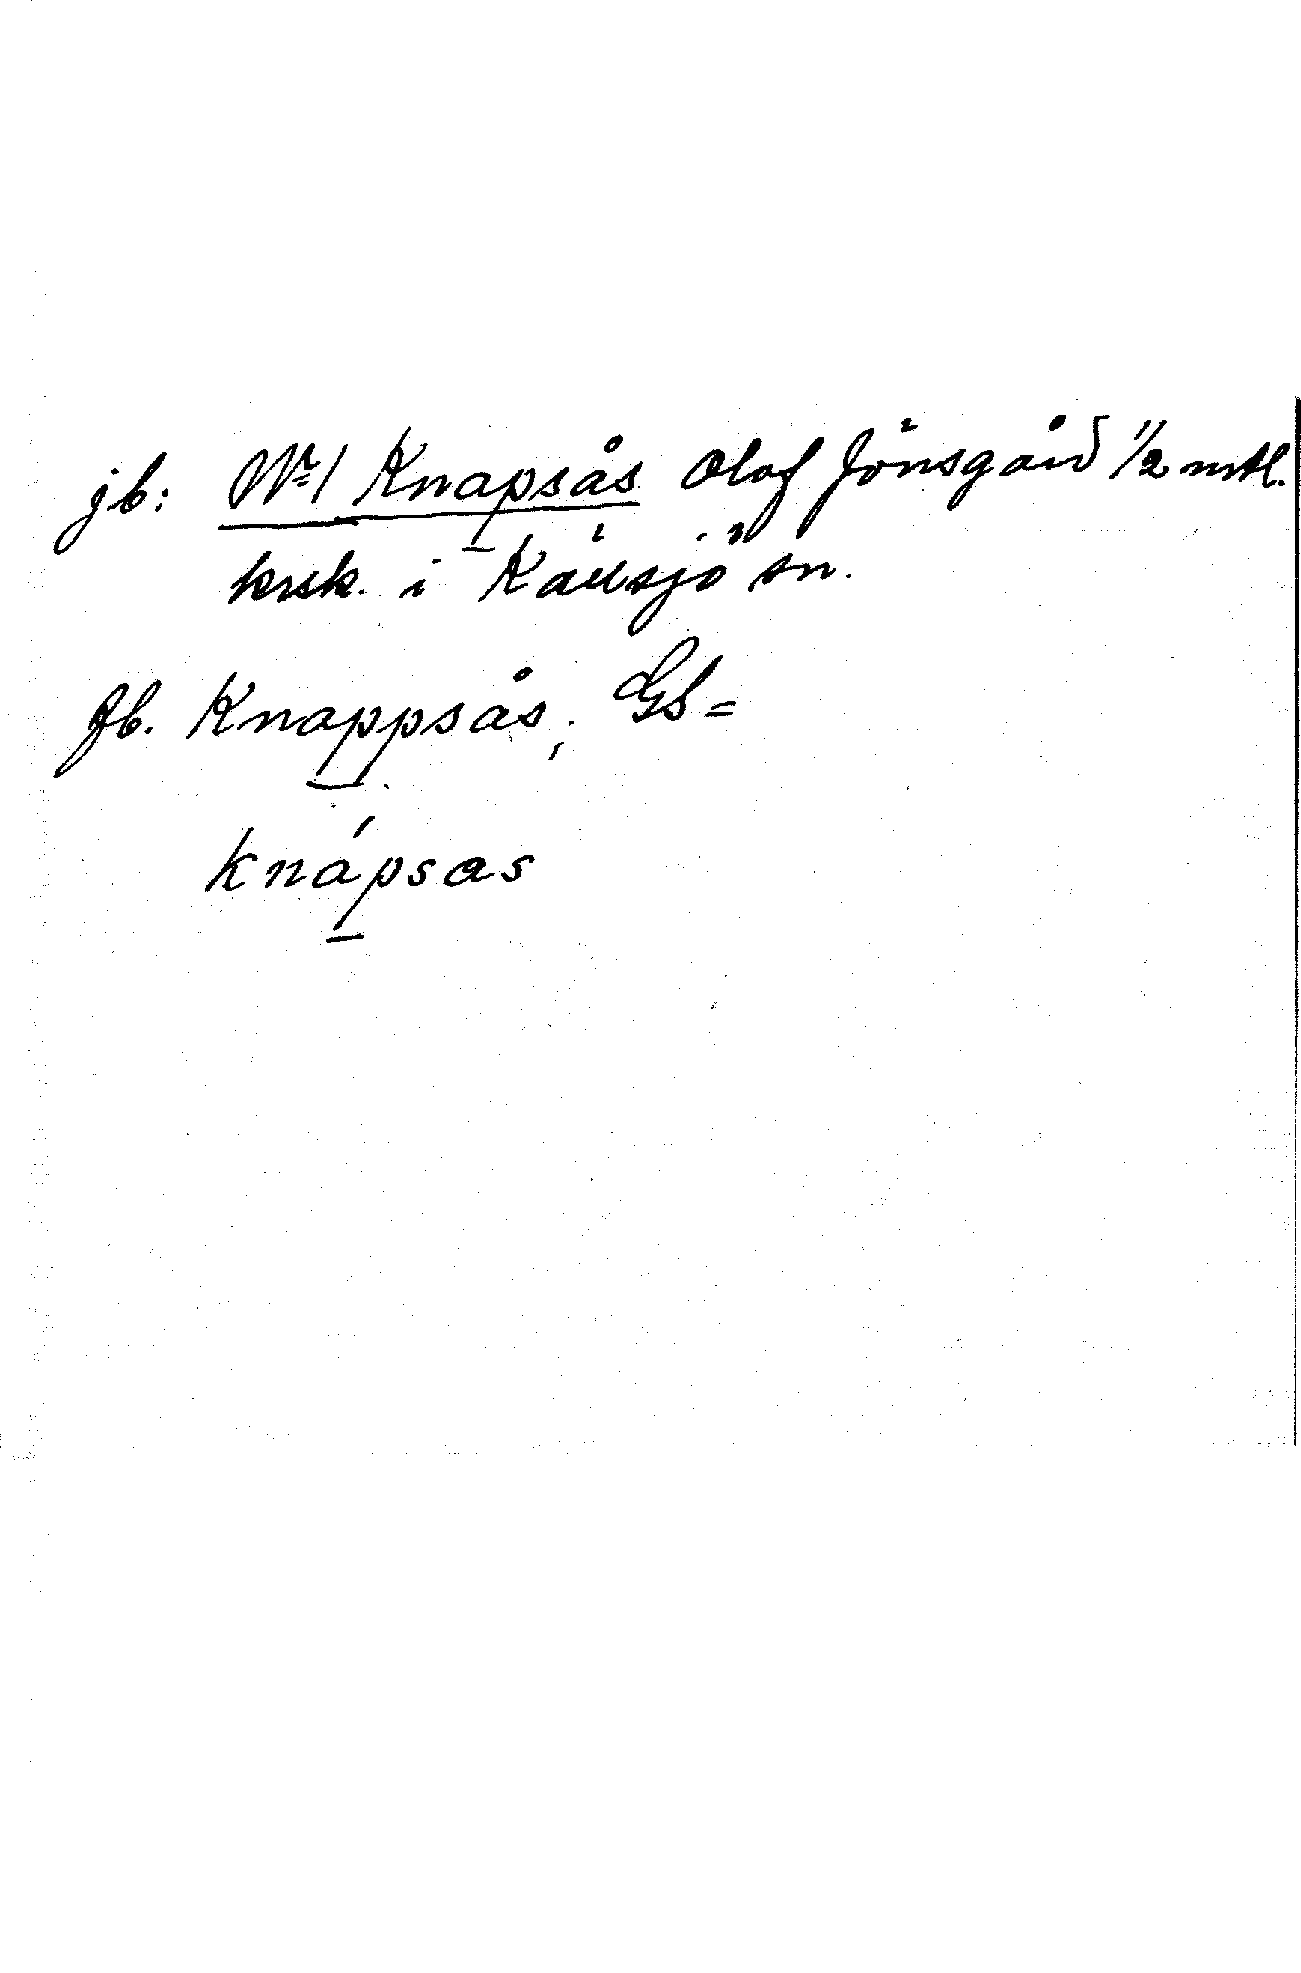 jb: Nr 1 Knapsås Olof Jönsgård 1/2 mtl.
krsk. i Källsjö sn.
Jb. Knappsås, GS=
knápsas